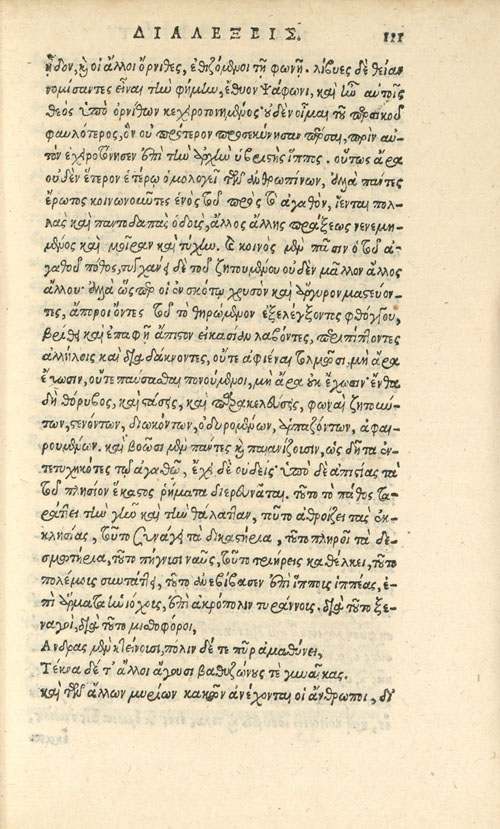 ΔΙΑΛΕΞΕΙΣ. 111
ᾖδον, καὶ οἱ ἄλλοι ὄρνιθες, ἐθιζόμενοι τῇ φωνῇ. λίβυες δὲ θείαν
νομίσαντες εἶναι τὴν φήμην, ἔθυον Ψάφωνι, καὶ ἦν αὐτοῖς
θεὸς ὑπὸ ὀρνίθων κεχειροτονημένος οὐδὲν οἶμαι τοῦ περσικοῦ
φαυλότερος, ὃν οὐ πρότερον προσεκύνησαν πέρσαι, πρὶν αὐ-
τὸν ἐχειροτόνησεν ἐπὶ τὴν ἀρχὴν ὑβριστὴς ἵππος. οὕτως ἄρα
οὐδὲν ἕτερον ἑτέρῳ ὁμολογεῖ τῶν ἀνθρωπίνων, ἀλλὰ πάντες
ἔρωτος κοινωνοῦντες ἑνὸς τοῦ πρὸς τὸ ἀγαθὸν, ἵενται πολ-
λὰς καὶ παντοδαπὰς ὁδοὺς, ἄλλος ἄλλης πράξεως νενεμη-
μένος καὶ μοῖραν καὶ τύχην. καὶ κοινὸς μὲν πᾶσιν ὁ τοῦ ἀ-
γαθοῦ πόθος, τυγχάνει δὲ τοῦ ζητουμένου οὐδὲν μᾶλλον ἄλλος
ἄλλου· ἀλλὰ ὥσπερ οἱ ἐν σκότῳ χρυσὸν καὶ ἄργυρον μαστεύον-
τες, ἀποροῦντες τοῦ τὸ θηρώμενον ἐξελέγξοντος φθόγγου,
βρίθει καὶ ἐπαφῇ ἄπιστον εἰκασίαν λαβόντες, περιπίπτοντες
ἀλλήλοις καὶ διαδάκνοντες, οὔτε ἀφιέναι τολμῶσι, μὴ ἄρα
ἔχωσιν, οὔτε παύσασθαι πονούμενοι, μὴ ἄρα οὐκ ἔχωσιν· ἔνθα
δὴ θόρυβος, καὶ στάσις, καὶ παρακελεύσεις, φωναὶ ζητούν-
των, στενόντων, διωκόντων, ὀδυρομένων, ἁρπαζόντων, ἀφαι-
ρουμένων. καὶ βοῶσι μὲν πάντες καὶ παιανίζουσιν, ὡς δῆτα ἐν-
τετυχηκότες τῷ ἀγαθῷ, ἔχει δὲ οὐδείς· ὑπὸ δὲ ἀπιστίας τὰ
τοῦ πλησίον ἕκαστος ῥήματα διερευνᾶται. τοῦτο τὸ πάθος τα-
ράττει τὴν γῆν καὶ τὴν θάλατταν, τοῦτο ἀθροίζει τὰς ἐκ-
κλησίας, τοῦτο συνάγει τὰ δικαστήρια, τοῦτο πληροῖ τὰ δε-
σμωτήρια, τοῦτο πήγνυσι ναῦς, τοῦτο τριήρεις καθέλκει, τοῦτο
πολέμους συντάττει, τοῦτο ἀνεβίβασεν ἐπὶ ἵπποις ἱππέας, ἐ-
πὶ ἅρματα ἡνιόχους, ἐπὶ ἀκρόπολιν τυράννους. διὰ τοῦτο ξε-
ναγοὶ, διὰ τοῦτο μισθοφόροι,
Ἄνδρας μὲν κτείνουσι, πόλιν δέ τε πῦρ ἀμαθύνει,
Τέκνα δέ τ' ἄλλοι ἄγουσι βαθυζώνους τε γυναῖκας.
καὶ τῶν ἄλλων μυρίων κακῶν ἀνέχονται οἱ ἄνθρωποι, δι'